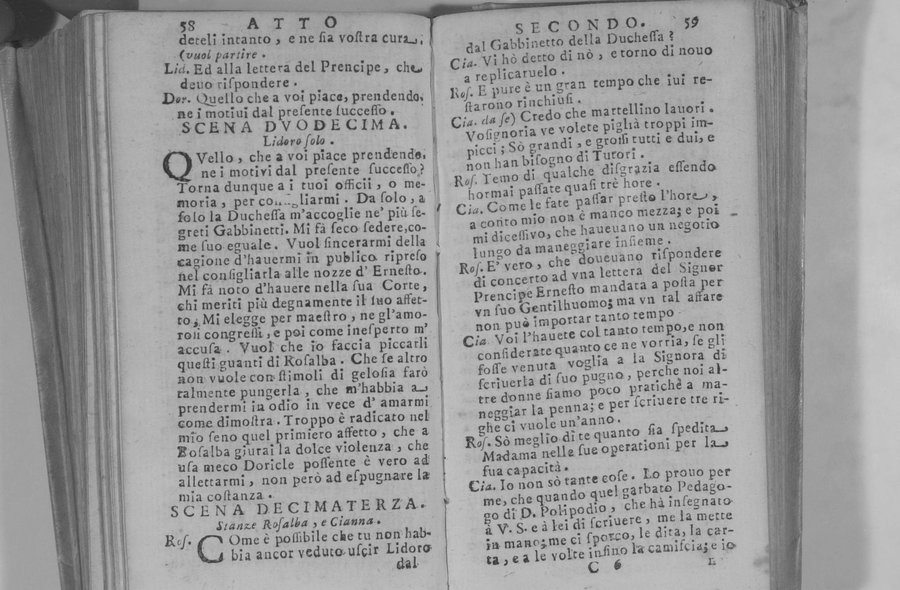 58 ATTO
deteli intanto, e ne ſia voſtra cura.
(vuol partire.
Lid. Ed alla lettera del Prencipe, che
devo riſpondere.
Dor. Quello che a voi piace, prendendo
ne i motivi dal preſente ſucceſſo.
SCENA DVODECIMA.
Lidoro ſolo.
QVello, che a voi piace prendendo
ne i motivi dal preſente ſucceſſo?
Torna dunque a i tuoi officii, o me-
moria, per liarmi. Da ſolo, a
ſolo la Ducheſſa m'accoglie ne' più ſe-
greti Gabbinetti. Mi fà ſeco ſedere, co-
me ſuo eguale. Vuol ſincerarmi della
cagione d'hauermi in publico ripreſo
nel conſigliarla alle nozze d'Erneſto.
Mi fà noto d'hauere nella ſua Corte,
chi meriti più degnamente il ſuo affet-
to, Mi elegge per maeſtro, ne gl'amo-
roſi congreſſi, e poi come ineſperto m'
accuſa. Vuol che io faccia piccarli
queſti guanti di Roſalba. Che ſe altro
non vuole con ſtimoli di geloſia farò
talmente pungerla, che m'habbia a
prendermi in odio in vece d'amarmi
come dimoſtra. Troppo è radicato nel
mio ſeno quel primiero affetto, che a
Roſalba giurai la dolce violenza, che
uſa meco Doricle poſſente è vero ad
allettarmi, non però ad eſpugnare la
mia coſtanza.
SCENA DECIMATERZA.
Stanze Roſalba, e Cianna.
Roſ. COme è poſſibile che tu non hab-
bia ancor veduto uſcir Lidoro
dal
SECONDO. 59
dal Gabbinetto della Ducheſſa?
Cia. Vi hò detto di nò, e torno di nouo
a replicaruelo.
Roſ. E pure è un gran tempo che iui re-
ſtarono rinchiuſi.
Cia. da ſe) Credo che martellino lauori.
Voſignoria ve volete piglià troppi im-
picci; Sò grandi, e groſſi tutti e dui, e
non han biſogno di Tutori.
Roſ. Temo di qualche diſgrazia eſſendo
hormai paſſate quaſi trè hore.
Cia. Come le fate paſſar preſto l'hore,
a conto mio non è manco mezza; e poi
mi diceſſivo, che haueuano un negotio
lungo da maneggiare inſieme.
Roſ. E' vero, che doueuano riſpondere
di concerto ad vna lettera del Signor
Prencipe Erneſto mandata a poſta per
vn ſuo Gentilhuomo; ma vn tal affare
non può importar tanto tempo
Cia. Voi l'hauete col tanto tempo, e non
conſiderate quanto ce ne vorria, ſe gli
foſſe venuta voglia a la Signora di
ſcriuerla di ſuo pugno, perche noi al-
tre donne ſiamo poco pratiche a ma-
neggiar la penna; e per ſcriuere tre ri-
ghe ci vuole un'anno.
Roſ. Sò meglio di te quanto ſia ſpedita
Madama nelle ſue operationi per la
ſua capacità.
Cia. Io non sò tante coſe. Lo prouo per
me, che quando quel garbato Pedago-
go di D. Polipodio, che hà inſegnato
à V. S. e à lei di ſcriuere, me la mette
in mano; me ci ſporco, le dita, la car-
ta, e a le volte inſino la camiſcia; e io
C 6 L